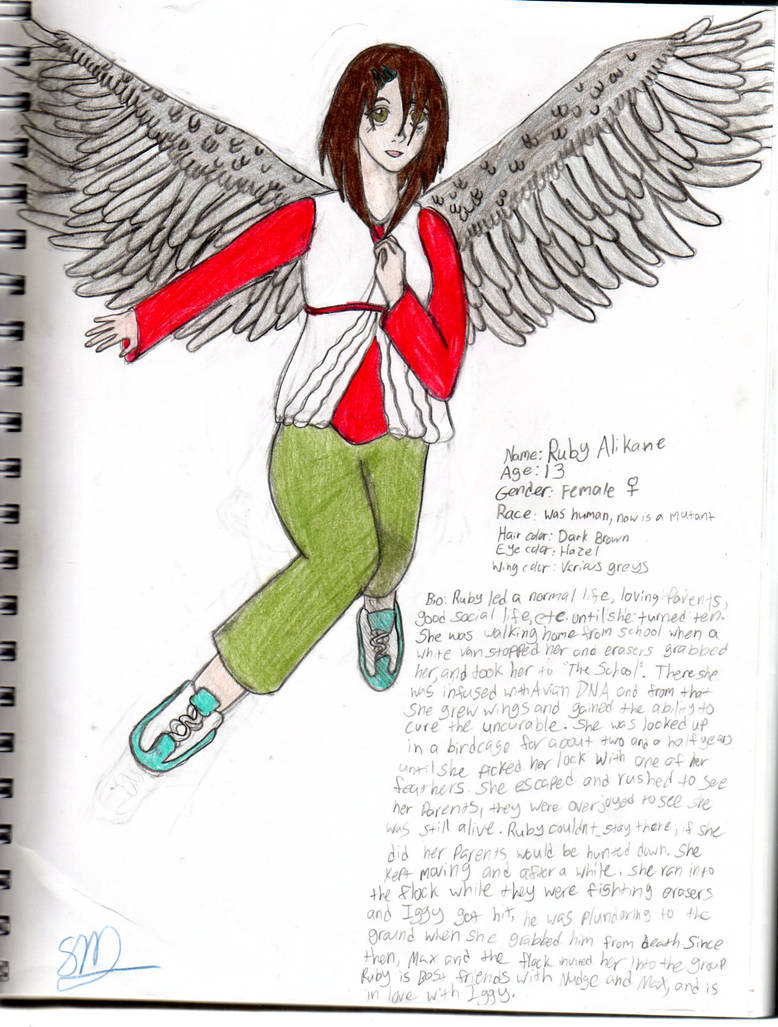 Name: Ruby Alikane
Age: 13
Gender: Female ♀
Race: was human, now is a mutant
Hair color: Dark Brown
Eye color: Hazel
Wing color: Various greys
Bio: Ruby led a normal life, loving Parents,
good social life, etc. until she turned ten.
She was walking home from school when a
white van stopped her and erasers grabbed
her, and took her to "The School". There she
was infused with Avian DNA and from that
She grew wings and gained the ability to
cure the uncurable. She was locked up
in a birdcage for about two and a half years
until she picked her lock with one of her
feathers. She escaped and rushed to see
her Parents, they were overjoyed to see she
was still alive. Ruby couldnt stay there, if she
did her Parents would be hunted down. She
kept moving and after a while, she ran into
the flock while they were fighting erasers
and Iggy got hit, he was plundering to the
ground when she grabbed him from death since
then, Max and the flock invited her into the group
Ruby is Best friends with Nudge and Max, and is
in love with Iggy.
SM